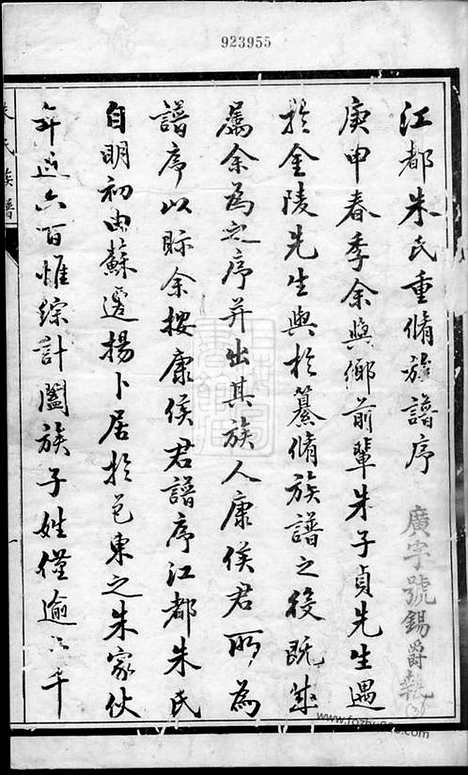 923955
江都朱氏重脩族譜序
廣字號錫爵執
庚申春季余與鄉前輩朱子貞先生遇
於金陵先生與於纂脩族譜之役既成
屬余為之序并出其族人康侯君所為
譜序以眎余按康侯君譜序江都朱氏
自明初由蘇遷揚卜居於邑東之朱家伙
年近六百惟綜計闔族子姓僅逾千
朱氏族譜
一